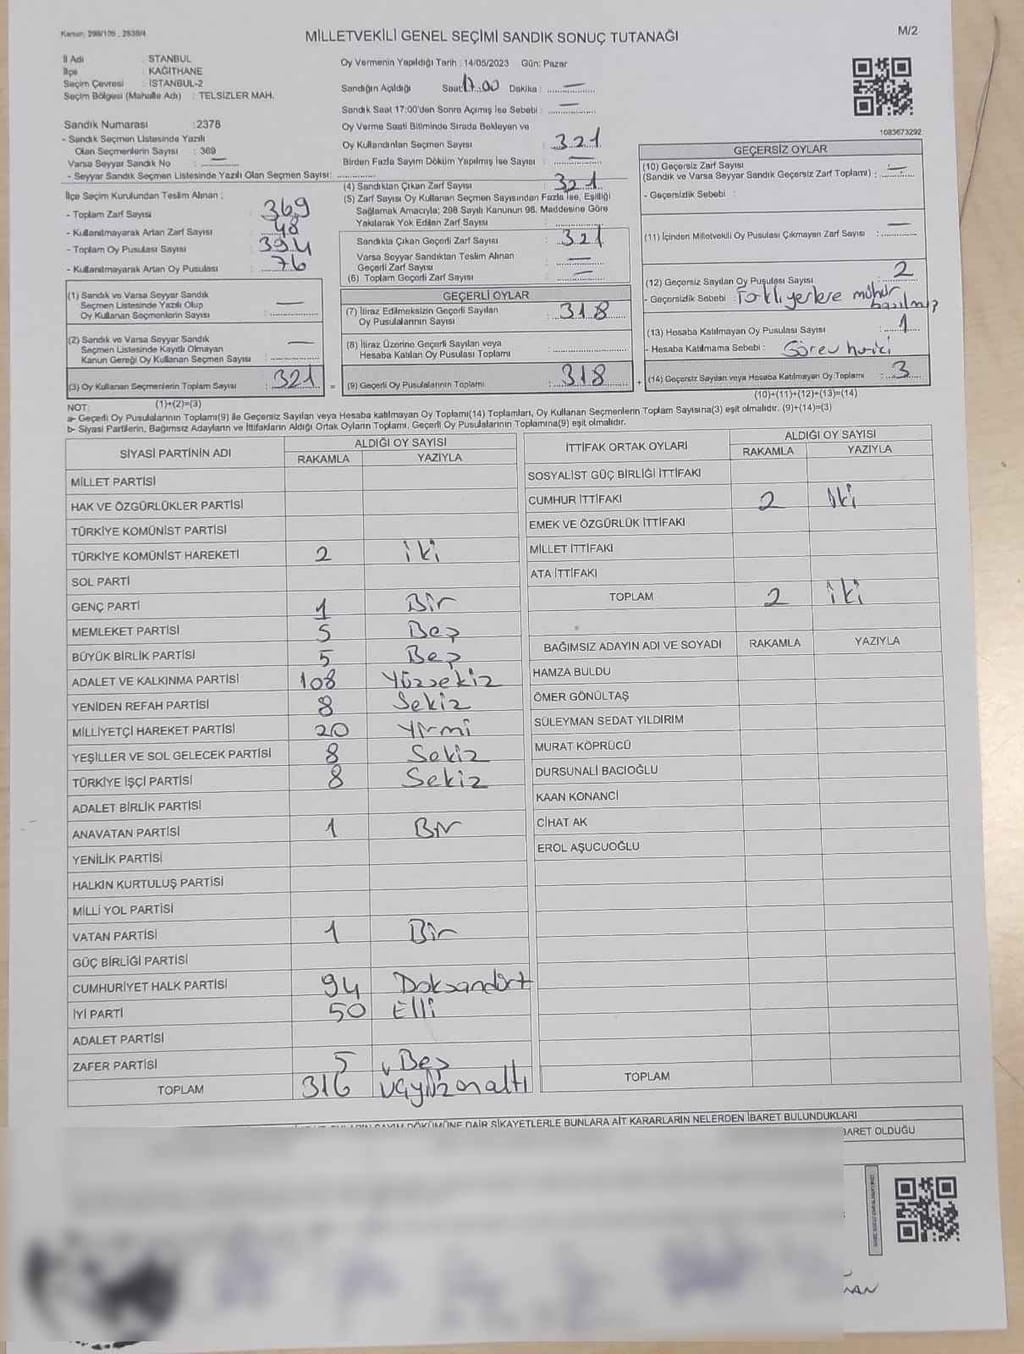 Kanun: 298/105 , 2839/4
MİLLETVEKİLİ GENEL SEÇİMİ SANDIK SONUÇ TUTANAĞI
M/2
İl Adı : İSTANBUL
İlçe : KAĞITHANE
Seçim Çevresi : İSTANBUL-2
Seçim Bölgesi (Mahalle Adı) : TELSİZLER MAH.
Sandık Numarası : 2378
- Sandık Seçmen Listesinde Yazılı
Olan Seçmenlerin Sayısı : 369
Varsa Seyyar Sandık No : —
- Seyyar Sandık Seçmen Listesinde Yazılı Olan Seçmen Sayısı:
İlçe Seçim Kurulundan Teslim Alınan ;
- Toplam Zarf Sayısı : 369
- Kullanılmayarak Artan Zarf Sayısı : 48
- Toplam Oy Pusulası Sayısı : 394
- Kullanılmayarak Artan Oy Pusulası : 76
(1) Sandık ve Varsa Seyyar Sandık
Seçmen Listesinde Yazılı Olup
Oy Kullanan Seçmenlerin Sayısı : —
(2) Sandık ve Varsa Seyyar Sandık
Seçmen Listesinde Kayıtlı Olmayan
Kanun Gereği Oy Kullanan Seçmen Sayısı : —
(3) Oy Kullanan Seçmenlerin Toplam Sayısı : 321
(1)+(2)=(3)
Oy Vermenin Yapıldığı Tarih : 14/05/2023 Gün: Pazar
Sandığın Açıldığı Saat: 17:00 Dakika : —
Sandık Saat 17:00'den Sonra Açımış İse Sebebi : —
Oy Verme Saati Bitiminde Sırada Bekleyen ve
Oy Kullandırılan Seçmen Sayısı : 321
Birden Fazla Sayım Döküm Yapılmış İse Sayısı : —
(4) Sandıktan Çıkan Zarf Sayısı : 321
(5) Zarf Sayısı Oy Kullanan Seçmen Sayısından Fazla İse, Eşitliği
Sağlamak Amacıyla; 298 Sayılı Kanunun 98. Maddesine Göre
Yakılarak Yok Edilen Zarf Sayısı :
Sandıkta Çıkan Geçerli Zarf Sayısı : 321
Varsa Seyyar Sandıktan Teslim Alınan
Geçerli Zarf Sayısı : —
(6) Toplam Geçerli Zarf Sayısı : —
GEÇERLİ OYLAR
(7) İtiraz Edilmeksizin Geçerli Sayılan
Oy Pusulalarının Sayısı : 318
(8) İtiraz Üzerine Geçerli Sayılan veya
Hesaba Katılan Oy Pusulası Toplamı :
= (9) Geçerli Oy Pusulalarının Toplamı : 318
1083673292
GEÇERSİZ OYLAR
(10) Geçersiz Zarf Sayısı
(Sandık ve Varsa Seyyar Sandık Geçersiz Zarf Toplamı) : —
- Geçersizlik Sebebi :
(11) İçinden Milletvekili Oy Pusulası Çıkmayan Zarf Sayısı : —
(12) Geçersiz Sayılan Oy Pusulası Sayısı : 2
- Geçersizlik Sebebi : Farklı yerlere mühür
(13) Hesaba Katılmayan Oy Pusulası Sayısı : 1
- Hesaba Katılmama Sebebi : Görev harici
+ (14) Geçersiz Sayılan veya Hesaba Katılmayan Oy Toplamı : 3
(10)+(11)+(12)+(13)=(14)
NOT:
a- Geçerli Oy Pusulalarının Toplamı(9) ile Geçersiz Sayılan veya Hesaba katılmayan Oy Toplamı(14) Toplamları, Oy Kullanan Seçmenlerin Toplam Sayısına(3) eşit olmalıdır. (9)+(14)=(3)
b- Siyasi Partilerin, Bağımsız Adayların ve İttifakların Aldığı Ortak Oyların Toplamı, Geçerli Oy Pusulalarının Toplamına(9) eşit olmalıdır.
SİYASİ PARTİNİN ADI ALDIĞI OY SAYISI
RAKAMLA YAZIYLA
MİLLET PARTİSİ
HAK VE ÖZGÜRLÜKLER PARTİSİ
TÜRKİYE KOMÜNİST PARTİSİ
TÜRKİYE KOMÜNİST HAREKETİ 2 iki
SOL PARTİ
GENÇ PARTİ 1 Bir
MEMLEKET PARTİSİ 5 Beş
BÜYÜK BİRLİK PARTİSİ 5 Beş
ADALET VE KALKINMA PARTİSİ 108 Yüzsekiz
YENİDEN REFAH PARTİSİ 8 Sekiz
MİLLİYETÇİ HAREKET PARTİSİ 20 Yirmi
YEŞİLLER VE SOL GELECEK PARTİSİ 8 Sekiz
TÜRKİYE İŞÇİ PARTİSİ 8 Sekiz
ADALET BİRLİK PARTİSİ
ANAVATAN PARTİSİ 1 Bir
YENİLİK PARTİSİ
HALKIN KURTULUŞ PARTİSİ
MİLLİ YOL PARTİSİ
VATAN PARTİSİ 1 Bir
GÜÇ BİRLİĞİ PARTİSİ
CUMHURİYET HALK PARTİSİ 94 Doksandört
İYİ PARTİ 50 Elli
ADALET PARTİSİ
ZAFER PARTİSİ 5 Beş
TOPLAM 316 üçyüzonaltı
İTTİFAK ORTAK OYLARI ALDIĞI OY SAYISI
RAKAMLA YAZIYLA
SOSYALİST GÜÇ BİRLİĞİ İTTİFAKI
CUMHUR İTTİFAKI 2 iki
EMEK VE ÖZGÜRLÜK İTTİFAKI
MİLLET İTTİFAKI
ATA İTTİFAKI
TOPLAM 2 iki
BAĞIMSIZ ADAYIN ADI VE SOYADI RAKAMLA YAZIYLA
HAMZA BULDU
ÖMER GÖNÜLTAŞ
SÜLEYMAN SEDAT YILDIRIM
MURAT KÖPRÜCÜ
DURSUNALİ BACIOĞLU
KAAN KONANCİ
CİHAT AK
EROL AŞUCUOĞLU
TOPLAM
DÖKÜMÜNE DAİR ŞİKAYETLERLE BUNLARA AİT KARARLARIN NELERDEN İBARET BULUNDUKLARI
BARET OLDUĞU